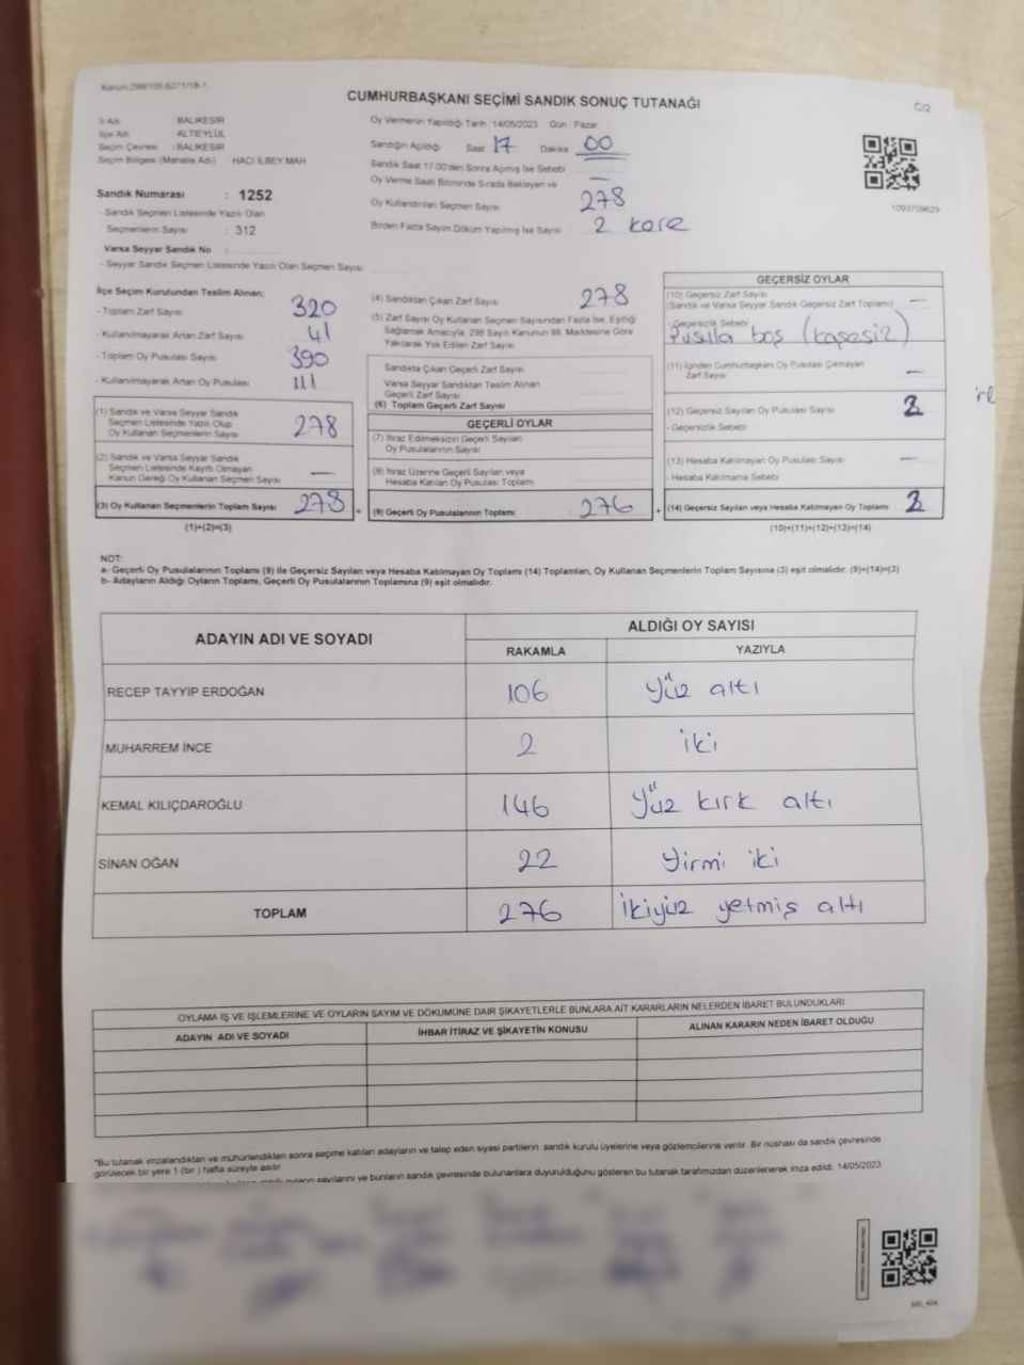 CUMHURBAŞKANI SEÇİMİ SANDIK SONUÇ TUTANAĞI
C/2
İli Adı BALIKESİR
İlçe Adı ALTIEYLÜL
Seçim Çevresi : BALIKESİR
Seçim Bölgesi (Mahalle Adı) HACI İLBEY MAH
Sandık Numarası : 1252
- Sandık Seçmen Listesinde Yazılı Olan
Seçmenlerin Sayısı : 312
Varsa Seyyar Sandık No
- Seyyar Sandık Seçmen Listesinde Yazılı Olan Seçmen Sayısı
Oy Vermenin Yapıldığı Tarih : 14/05/2023 Gün : Pazar
Sandığın Açıldığı Saat 17 Dakika 00
Sandık Saat 17.00'den Sonra Açılmış İse Sebebi
Oy Verme Saati Bitiminde Sırada Bekleyen ve —
Oy Kullandırılan Seçmen Sayısı 278
Birden Fazla Sayım Döküm Yapılmış İse Sayısı 2 kere
İlçe Seçim Kurulundan Teslim Alınan:
- Toplam Zarf Sayısı 320
- Kullanılmayarak Artan Zarf Sayısı 41
- Toplam Oy Pusulası Sayısı 390
- Kullanılmayarak Artan Oy Pusulası 111
(1) Sandık ve Varsa Seyyar Sandık
Seçmen Listesinde Yazılı Olup
Oy Kullanan Seçmenlerin Sayısı 278
(2) Sandık ve Varsa Seyyar Sandık
Seçmen Listesinde Kayıtlı Olmayan
Kanun Gereği Oy Kullanan Seçmen Sayısı —
(3) Oy Kullanan Seçmenlerin Toplam Sayısı 278
(1)+(2)=(3)
(4) Sandıktan Çıkan Zarf Sayısı 278
(5) Zarf Sayısı Oy Kullanan Seçmen Sayısından Fazla İse, Eşitliği
Sağlamak Amacıyla, 298 Sayılı Kanunun 98. Maddesine Göre
Yakılarak Yok Edilen Zarf Sayısı
Sandıkta Çıkan Geçerli Zarf Sayısı
Varsa Seyyar Sandıktan Teslim Alınan
Geçerli Zarf Sayısı
(6) Toplam Geçerli Zarf Sayısı
GEÇERLİ OYLAR
(7) İtiraz Edilmeksizin Geçerli Sayılan
Oy Pusulalarının Sayısı
(8) İtiraz Üzerine Geçerli Sayılan veya
Hesaba Katılan Oy Pusulası Toplamı
(9) Geçerli Oy Pusulalarının Toplamı 276
GEÇERSİZ OYLAR
(10) Geçersiz Zarf Sayısı
(Sandık ve Varsa Seyyar Sandık Geçersiz Zarf Toplamı) —
- Geçersizlik Sebebi
Pusula boş (kaşesiz)
(11) İçinden Cumhurbaşkanı Oy Pusulası Çıkmayan
Zarf Sayısı —
(12) Geçersiz Sayılan Oy Pusulası Sayısı 2
- Geçersizlik Sebebi
(13) Hesaba Katılmayan Oy Pusulası Sayısı —
- Hesaba Katılmama Sebebi
(14) Geçersiz Sayılan veya Hesaba Katılmayan Oy Toplamı 2
(10)+(11)+(12)+(13)=(14)
NOT:
a- Geçerli Oy Pusulalarının Toplamı (9) ile Geçersiz Sayılan veya Hesaba Katılmayan Oy Toplamı (14) Toplamları, Oy Kullanan Seçmenlerin Toplam Sayısına (3) eşit olmalıdır. (9)+(14)=(3)
b- Adayların Aldığı Oyların Toplamı, Geçerli Oy Pusulalarının Toplamına (9) eşit olmalıdır.
ADAYIN ADI VE SOYADI ALDIĞI OY SAYISI
RAKAMLA YAZIYLA
RECEP TAYYİP ERDOĞAN 106 yüz altı
MUHARREM İNCE 2 iki
KEMAL KILIÇDAROĞLU 146 yüz kırk altı
SİNAN OĞAN 22 yirmi iki
TOPLAM 276 ikiyüz yetmiş altı
OYLAMA İŞ VE İŞLEMLERİNE VE OYLARIN SAYIM VE DÖKÜMÜNE DAİR ŞİKAYETLERLE BUNLARA AİT KARARLARIN NELERDEN İBARET BULUNDUKLARI
ADAYIN ADI VE SOYADI İHBAR İTİRAZ VE ŞİKAYETİN KONUSU ALINAN KARARIN NEDEN İBARET OLDUĞU
"Bu tutanak imzalandıktan ve mühürlendikten sonra seçime katılan adayların ve talep eden siyasi partilerin sandık kurulu üyelerine veya gözlemcilerine verilir. Bir nüshası da sandık çevresinde
görülecek bir yere 1 (bir) hafta süreyle asılır.
sayılarını ve bunların sandık çevresinde bulunanlara duyurulduğunu gösteren bu tutanak tarafımızdan düzenlenerek imza edildi. 14/05/2023